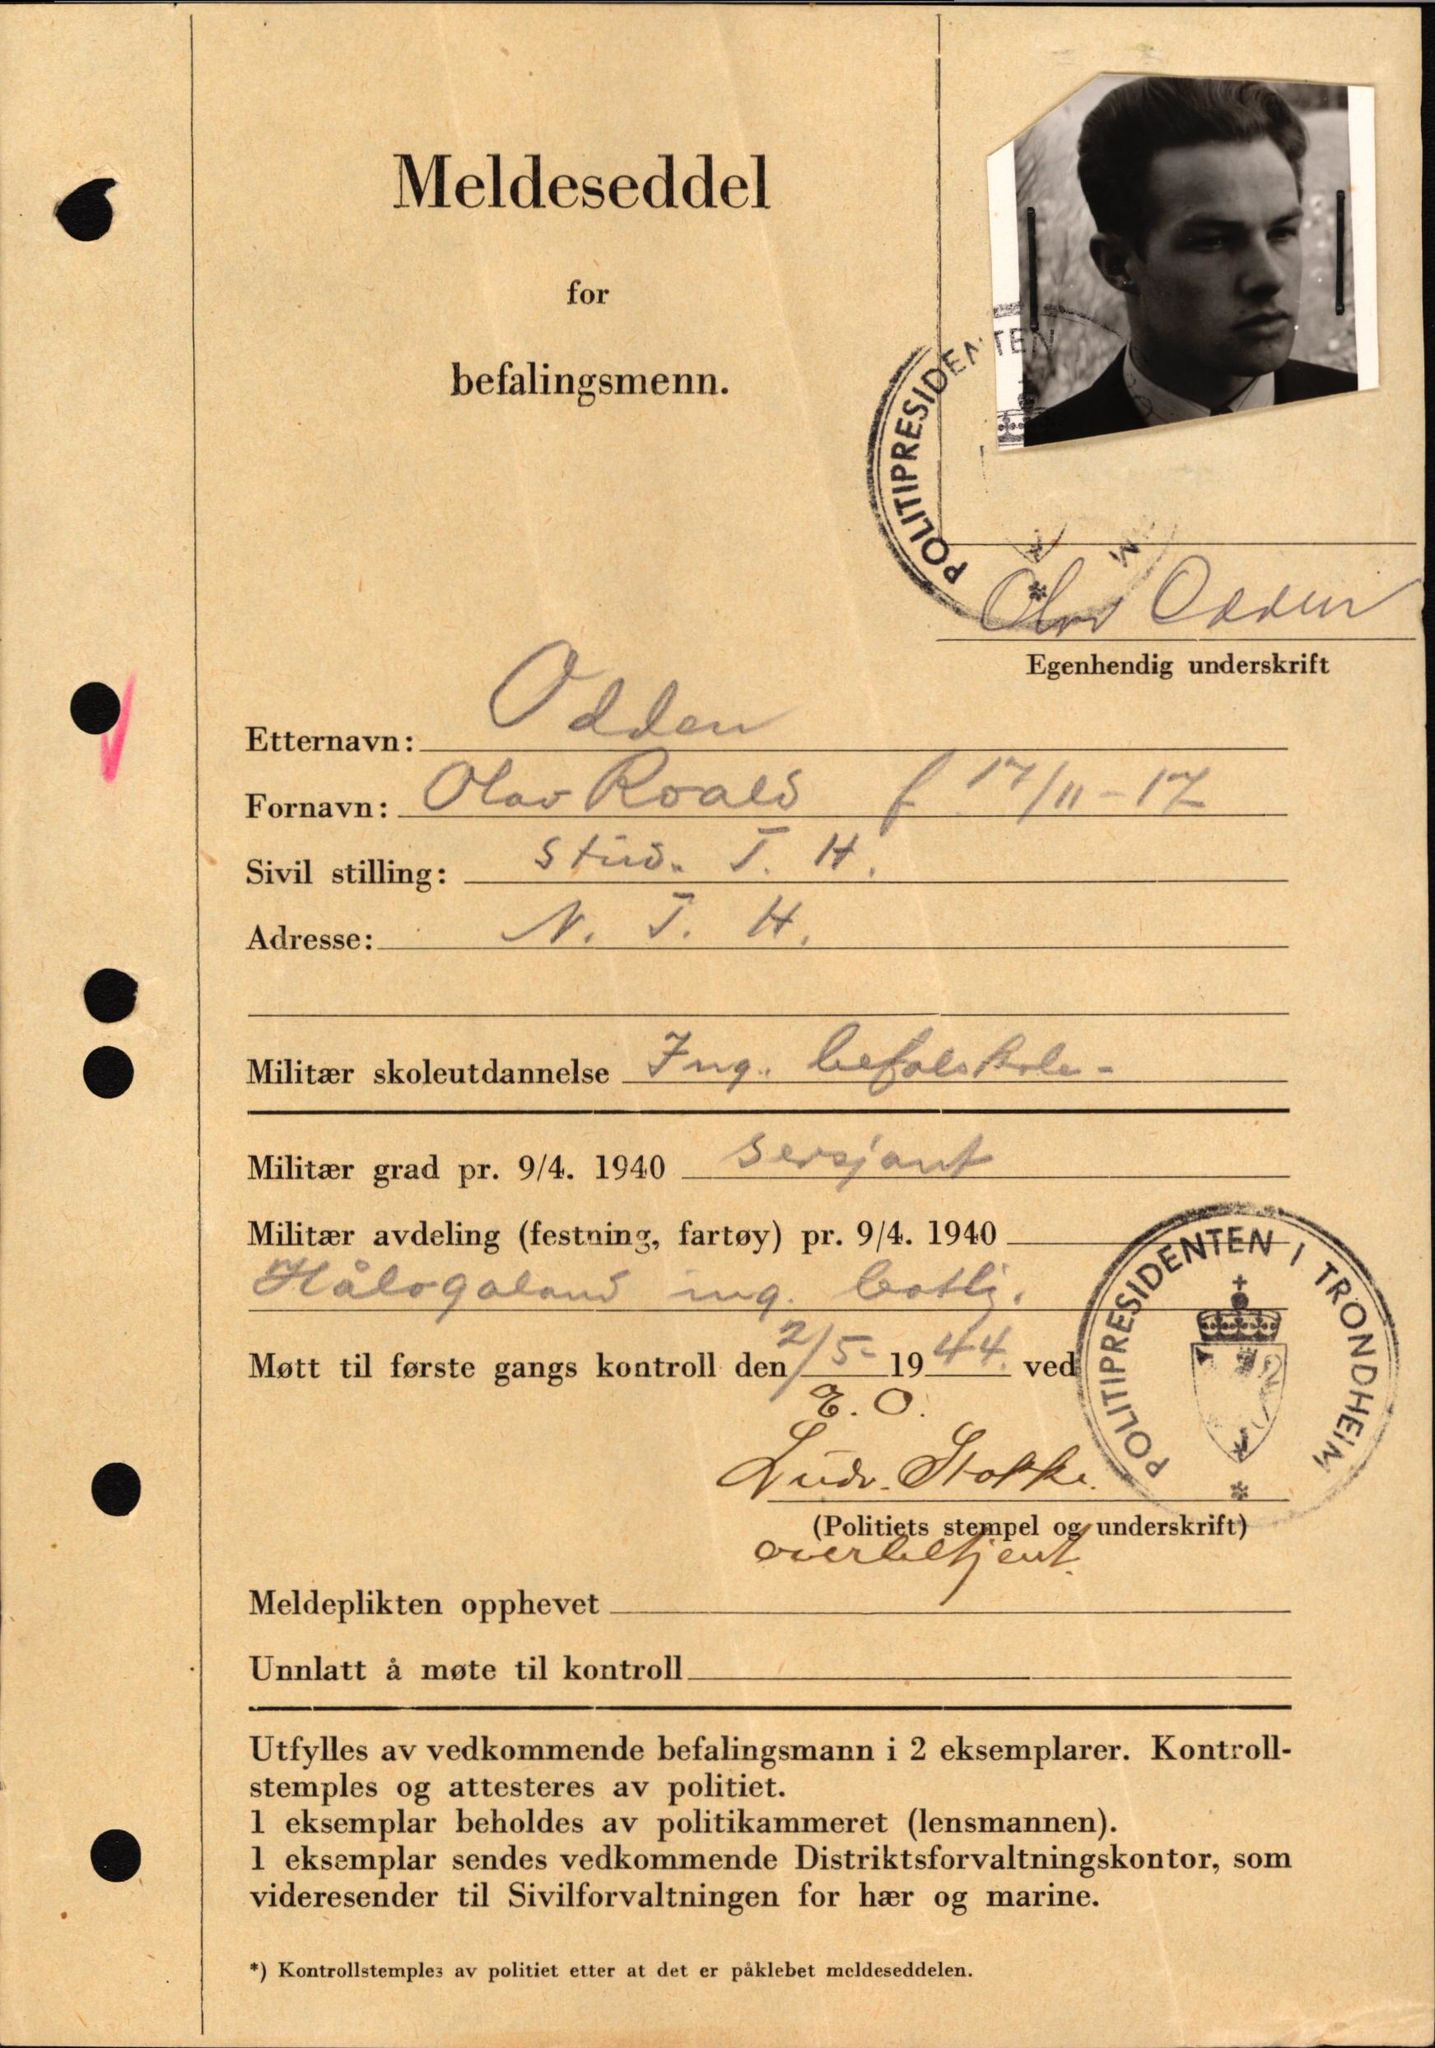 Meldeseddel
for
befalingsmenn.
POLITIPRESIDENTEN
M
Olav Odden
Egenhendig underskrift
Etternavn: Odden
Fornavn: Olav Roald f 17/11-17
Sivil stilling: stud. T. H.
Adresse: N. T. H.
Militær skoleutdannelse Ing. befalskole-
Militær grad pr. 9/4. 1940 sersjant
Militær avdeling (festning, fartøy) pr. 9/4. 1940
Hålogaland ing. batlj.
Møtt til første gangs kontroll den 2/5- 1944. ved
POLITIPRESIDENTEN I TRONDHEIM
E. O.
Ludv. Stokke.
(Politiets stempel og underskrift)
overbetjent.
Meldeplikten opphevet
Unnlatt å møte til kontroll
Utfylles av vedkommende befalingsmann i 2 eksemplarer. Kontroll-
stemples og attesteres av politiet.
1 eksemplar beholdes av politikammeret (lensmannen).
1 eksemplar sendes vedkommende Distriktsforvaltningskontor, som
videresender til Sivilforvaltningen for hær og marine.
*) Kontrollstemples av politiet etter at det er påklebet meldeseddelen.